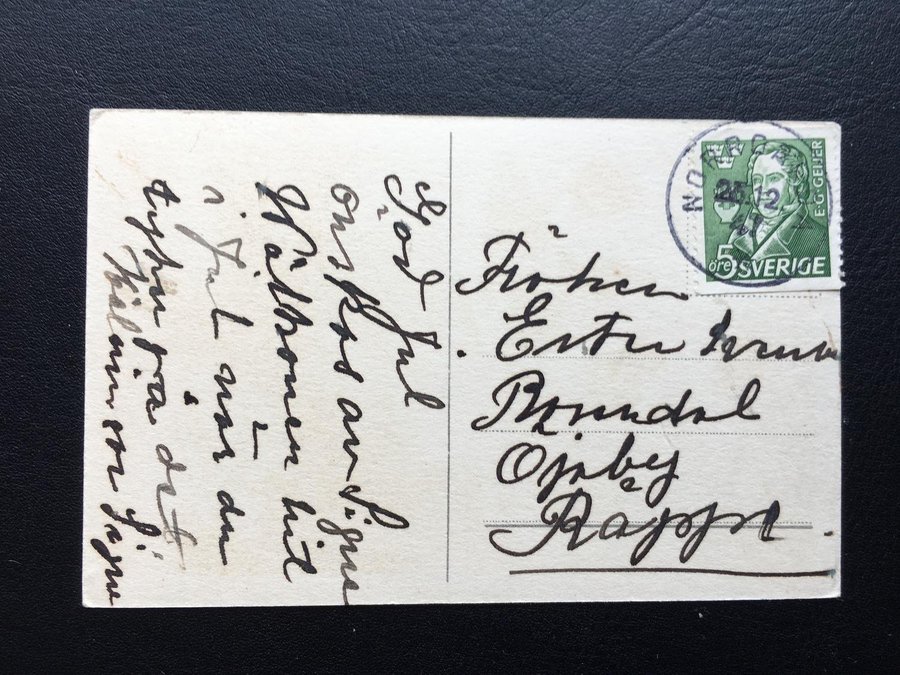 God Jul
önskas av Signe
Välkomen hit
i Jul när du
får
Hälsn
Signe
Fröken
Ester
Rosendal
Öjeby
Råppe
NORR
23.12
47
E·G·GEIJER
5
öre SVERIGE